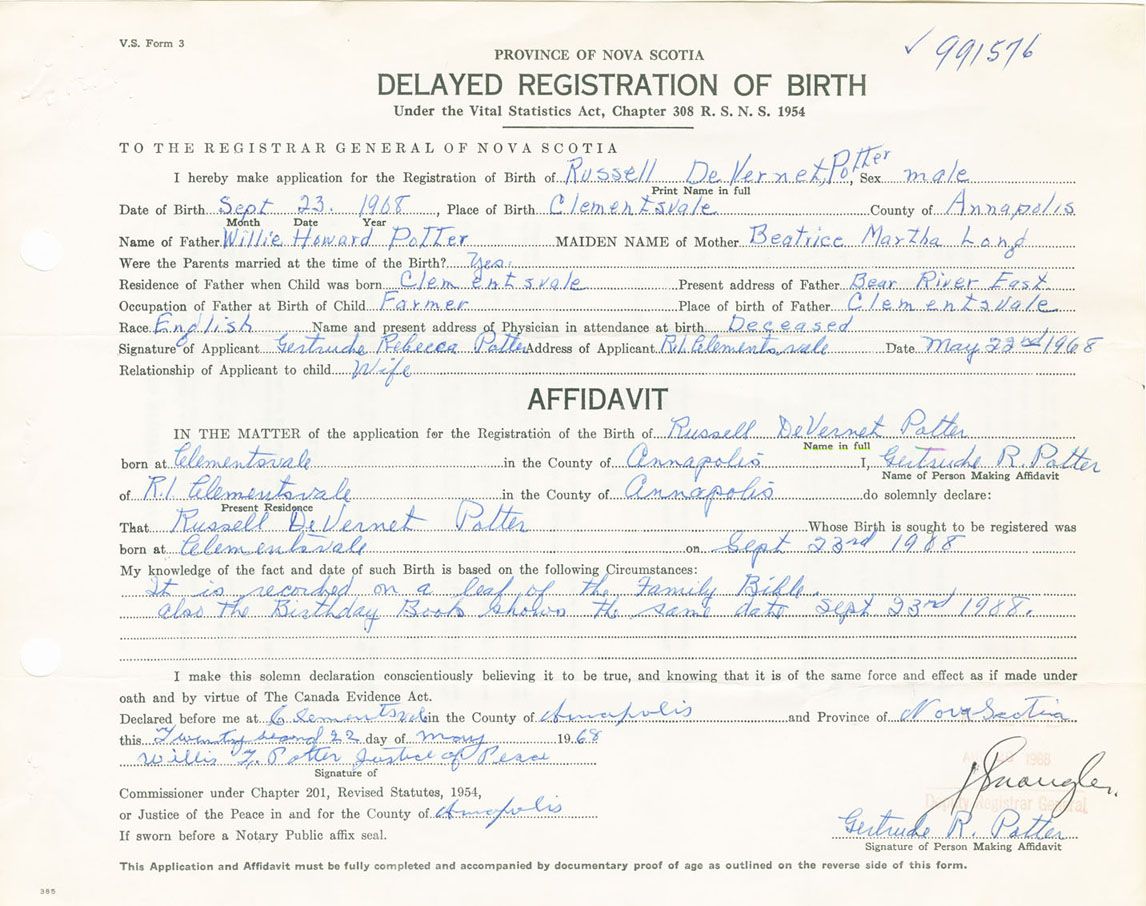 V.S. Form 3
✓ 991576
PROVINCE OF NOVA SCOTIA
DELAYED REGISTRATION OF BIRTH
Under the Vital Statistics Act, Chapter 308 R. S. N. S. 1954
TO THE REGISTRAR GENERAL OF NOVA SCOTIA
I hereby make application for the Registration of Birth of Russell De Vernet, Potter, Sex male
Print Name in full
Date of Birth Sept 23. 1908, Place of Birth Clementsvale County of Annapolis
Month Date Year
Name of Father Willie Howard Potter MAIDEN NAME of Mother Beatrice Martha Long
Were the Parents married at the time of the Birth? Yes.
Residence of Father when Child was born Clementsvale Present address of Father Bear River East
Occupation of Father at Birth of Child Farmer Place of birth of Father Clementsvale
Race English Name and present address of Physician in attendance at birth Deceased
Signature of Applicant Gertrude Rebecca Potter Address of Applicant R.1. Clementsvale Date May 22nd 1968
Relationship of Applicant to child Wife
AFFIDAVIT
IN THE MATTER of the application for the Registration of the Birth of Russell DeVernet Potter
Name in full
born at Clementsvale in the County of Annapolis I, Gertrude R. Potter
Name of Person Making Affidavit
of R.1 Clementsvale in the County of Annapolis do solemnly declare:
Present Residence
That Russell DeVernet Potter Whose Birth is sought to be registered was
born at Clementsvale on Sept 23rd 1908
My knowledge of the fact and date of such Birth is based on the following Circumstances:
It is recorded on a leaf of the Family Bible.
also the Birthday Book shows the same date Sept 23rd 1908.
I make this solemn declaration conscientiously believing it to be true, and knowing that it is of the same force and effect as if made under
oath and by virtue of The Canada Evidence Act.
Declared before me at Clementsvale in the County of Annapolis and Province of Nova Scotia
this Twenty second 22 day of May 1968
Willis Potter Justice of Peace
Signature of
1968
Commissioner under Chapter 201, Revised Statutes, 1954,
Deputy Registrar General
or Justice of the Peace in and for the County of Annapolis
Gertrude R. Potter
If sworn before a Notary Public affix seal.
Signature of Person Making Affidavit
This Application and Affidavit must be fully completed and accompanied by documentary proof of age as outlined on the reverse side of this form.
385